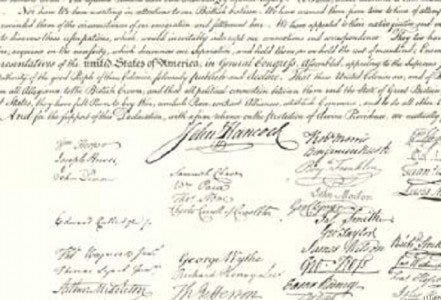 Nor have We been wanting in attentions to our British brethren. We have warned them from time to time of attempts
reminded them of the circumstances of our emigration and settlement here. We have appealed to their native justice and
to disavow these usurpations, which would inevitably interrupt our connections and correspondence. They too have
acquiesce in the necessity, which denounces our Separation, and hold them, as we hold the rest of mankind, Enemies
resentatives of the united States of America, in General Congress, Assembled, appealing to the Supreme
uthority of the good People of these Colonies, solemnly publish and declare, That these United Colonies are, and of
om all Allegiance to the British Crown, and that all political connection between them and the State of Great Britain
t States, they have full Power to levy War, conclude Peace, contract Alliances, establish Commerce, and to do all other
And for the support of this Declaration, with a firm reliance on the protection of divine Providence, we mutually
John Hancock
Wm Hooper
Joseph Hewes
John Penn
Edward Rutledge
Thos Heyward Junr
Thomas Lynch Junr
Arthur Middleton
Samuel Chase
Wm Paca
Thos Stone
Charles Carroll of Carrollton
George Wythe
Richard Henry Lee
Th Jefferson
Robt Morris
Benjamin Rush
Benj Franklin
John Morton
Geo Clymer
Jas Smith
Geo Taylor
James Wilson
Geo Ross
Caesar Rodney